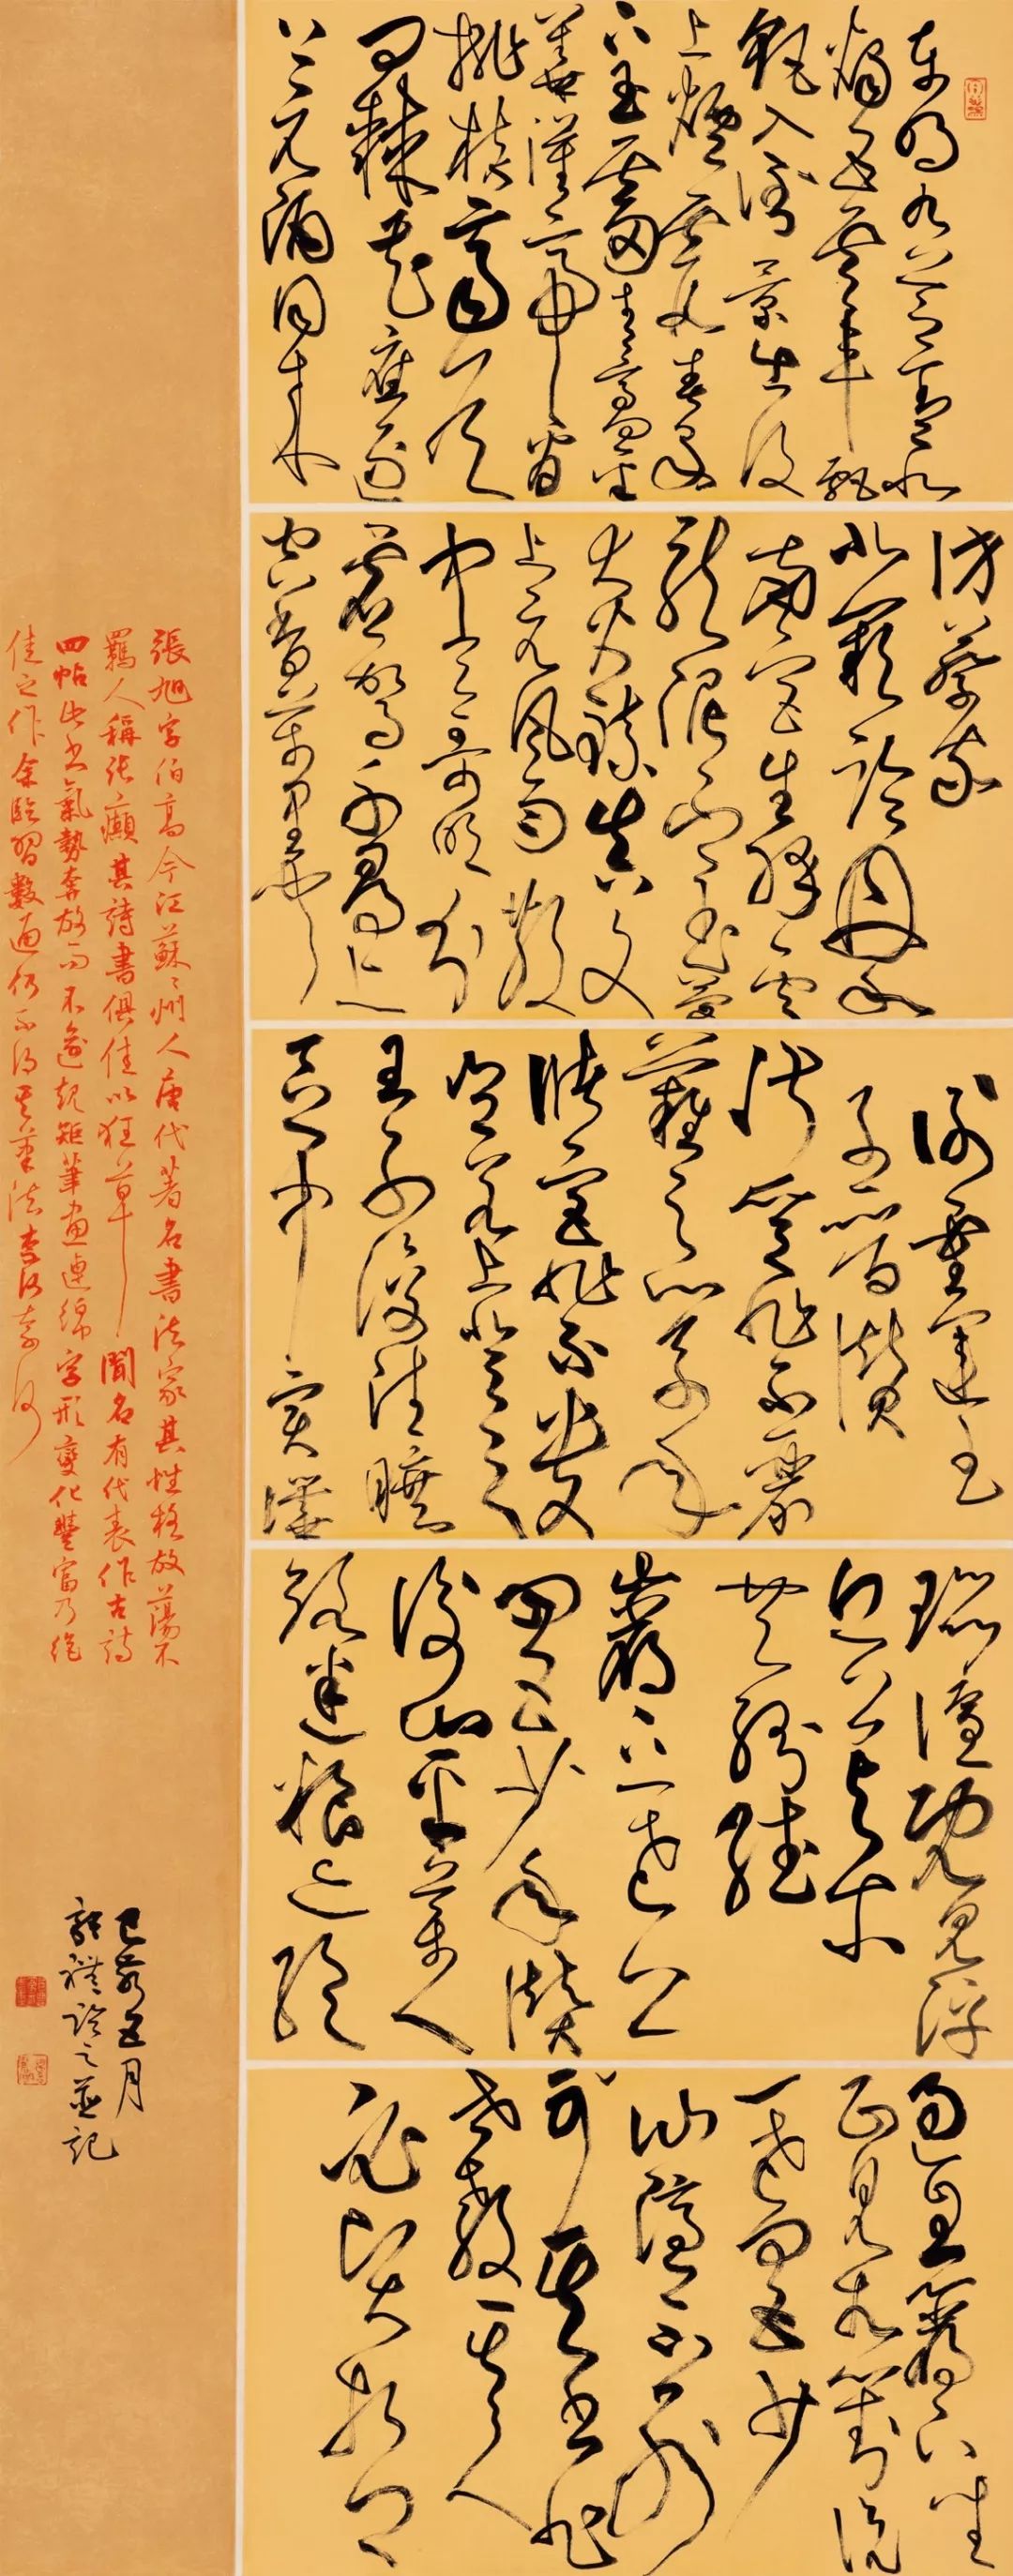 東明九芝蓋北
燭五雲車飄
飖入倒景出沒
上煙霞春泉
下玉霤青鳥向金
華漢帝看
桃核齊侯
問棘花應逐
上元酒同來
訪蔡家
北闕臨丹水
南宮生絳雲
龍泥印玉簡
大火煉真文
上元風雨散
中天歌吹分
靈駕千尋上
空香萬里聞
謝靈運王
子晉贊
淑質非不麗
難之以萬年
儲宮非不貴
豈若上登天
王子復清曠
區中實譁
囂喧既見浮
丘公與爾
共紛繙
巖下一老公
四五少年贊
衡山采藥人
路迷糧亦絕
過息巖下坐
正見相對說
一老四五少
仙隱不別
可其書非
世教其人
必賢哲
張旭字伯高今江蘇蘇州人唐代著名書法家其性格放蕩不
羈人稱張癲其詩書俱佳以狂草聞名有代表作古詩
四帖此書氣勢奔放而不逾規矩筆畫連綿字形變化豐富乃絕
佳之作余臨習數通仍不得其筆法奈何奈何
五月
臨之並記